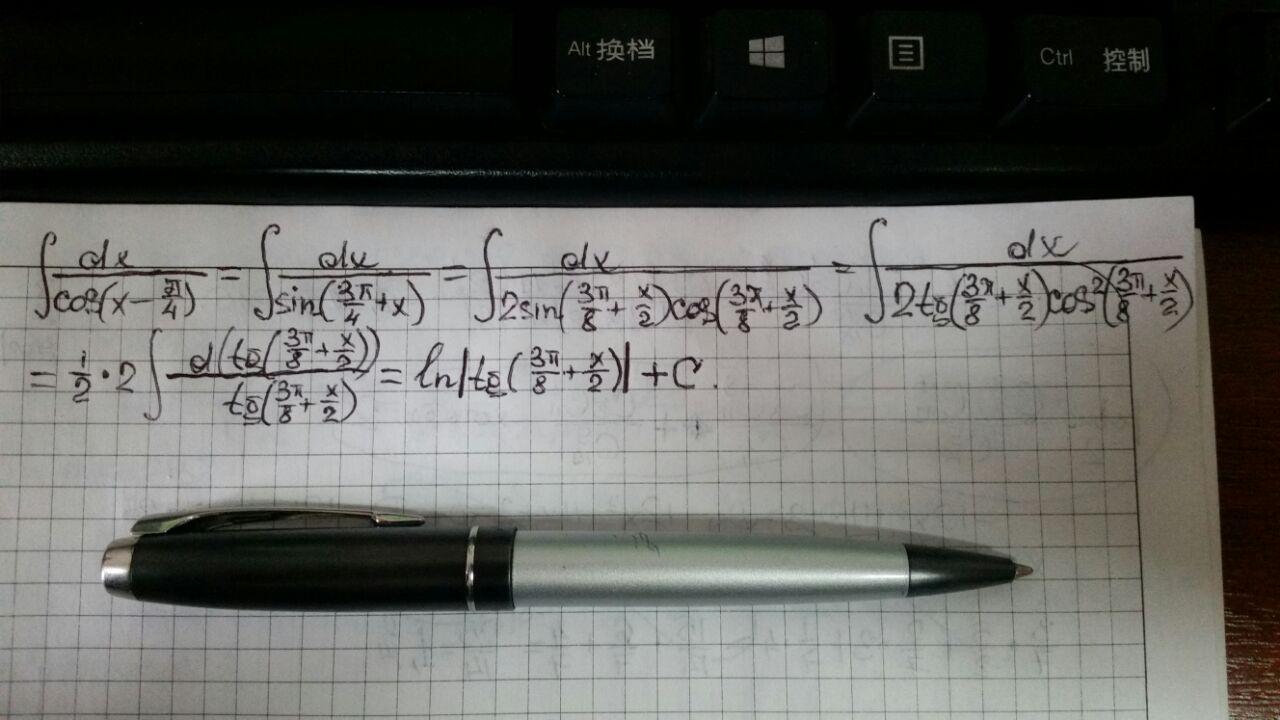 Alt 换档 Ctrl 控制
∫ dx/cos(x - π/4) = ∫ dx/sin(3π/4 + x) = ∫ dx/2sin(3π/8 + x/2)cos(3π/8 + x/2) = ∫ dx/2tg(3π/8 + x/2)cos²(3π/8 + x/2)
= 1/2 · 2 ∫ d(tg(3π/8 + x/2))/tg(3π/8 + x/2) = ln|tg(3π/8 + x/2)| + C.